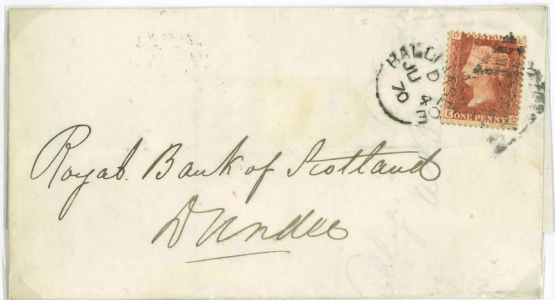 JU 4
70
ONE PENNY
Royal Bank of Scotland
Dundee